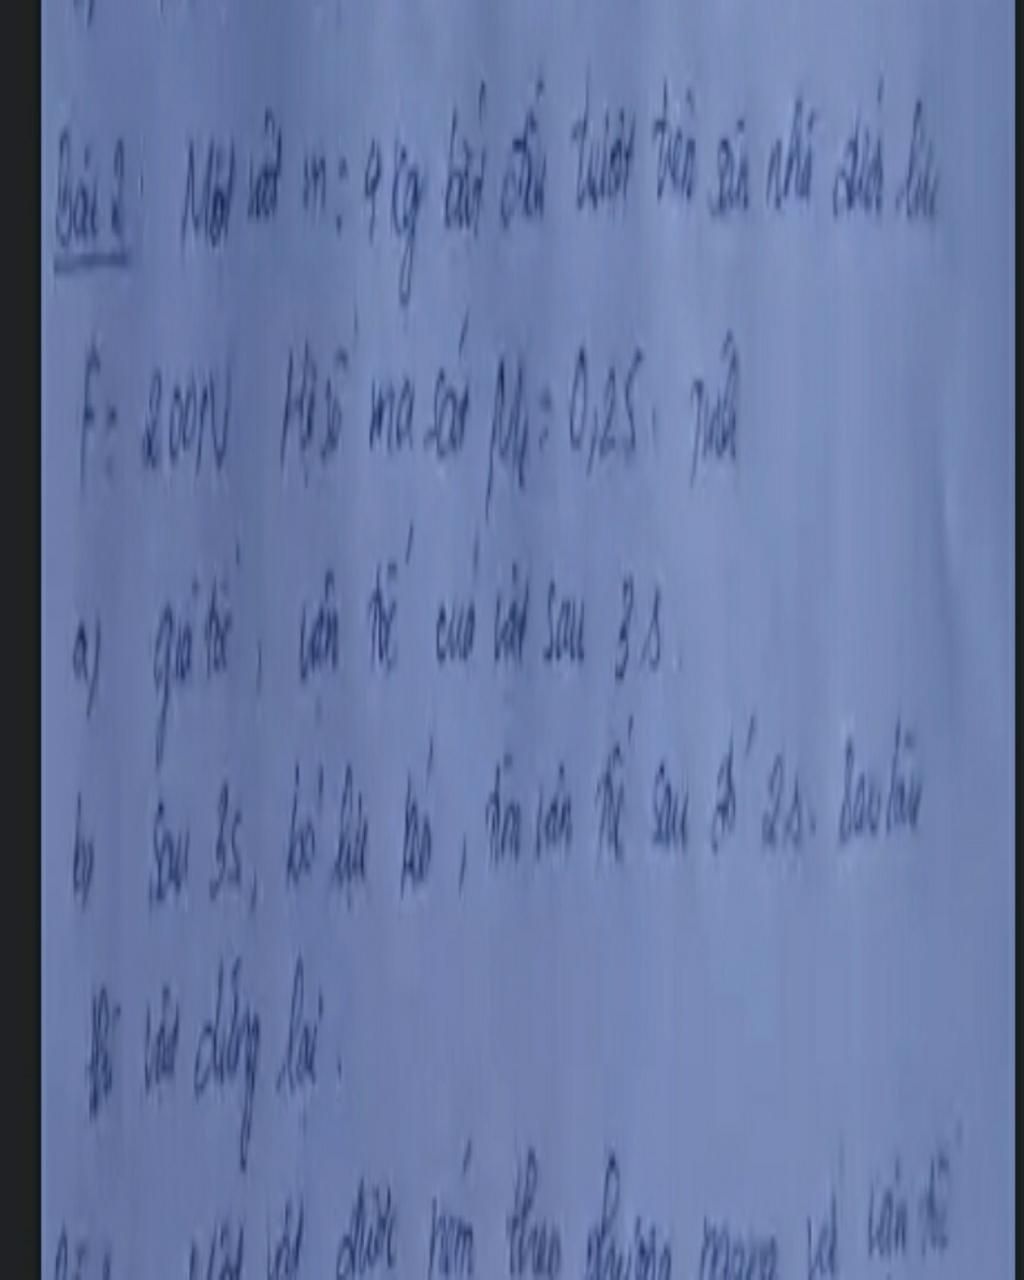 Bài 2. Một vật m = 4 kg bắt đầu trượt trên sàn nhờ dưới lực
F = 200N Hệ số ma sát μ = 0,25. Tính
a) gia tốc, vận tốc của vật sau 3s.
b) Sau 3s, bỏ lực kéo, tìm vận tốc sau đó 2s. Sau bao
vật dừng lại.
Một vật được ném theo phương ngang với vận tốc